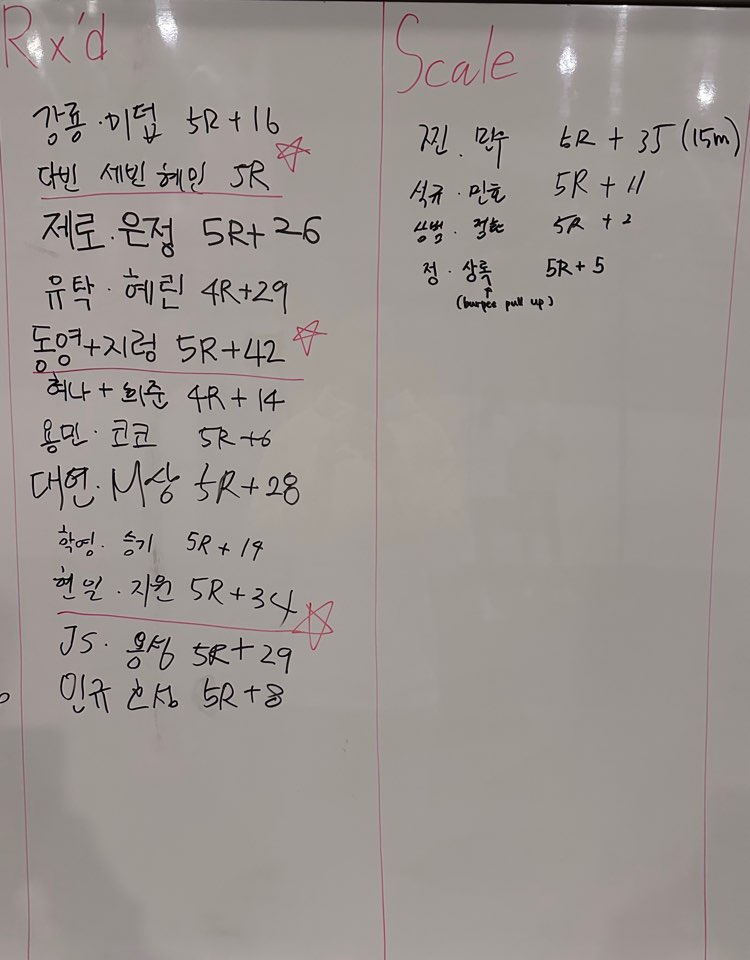 Rx'd
강룡·미덥 5R+16
다빈 세빈 혜인 5R
제로·은정 5R+26
유탁·혜린 4R+29
동영+지렁 5R+42
혜나+희준 4R+14
용민·코코 5R+6
대연·M상 5R+28
학영·승기 5R+14
현일·지원 5R+34
JS·용성 5R+29
인규 5R+8
Scale
찐.민수 5R+35(15m)
석규·민호 5R+11
상범· 5R+2
정·상록 5R+5
(burpee pull up)